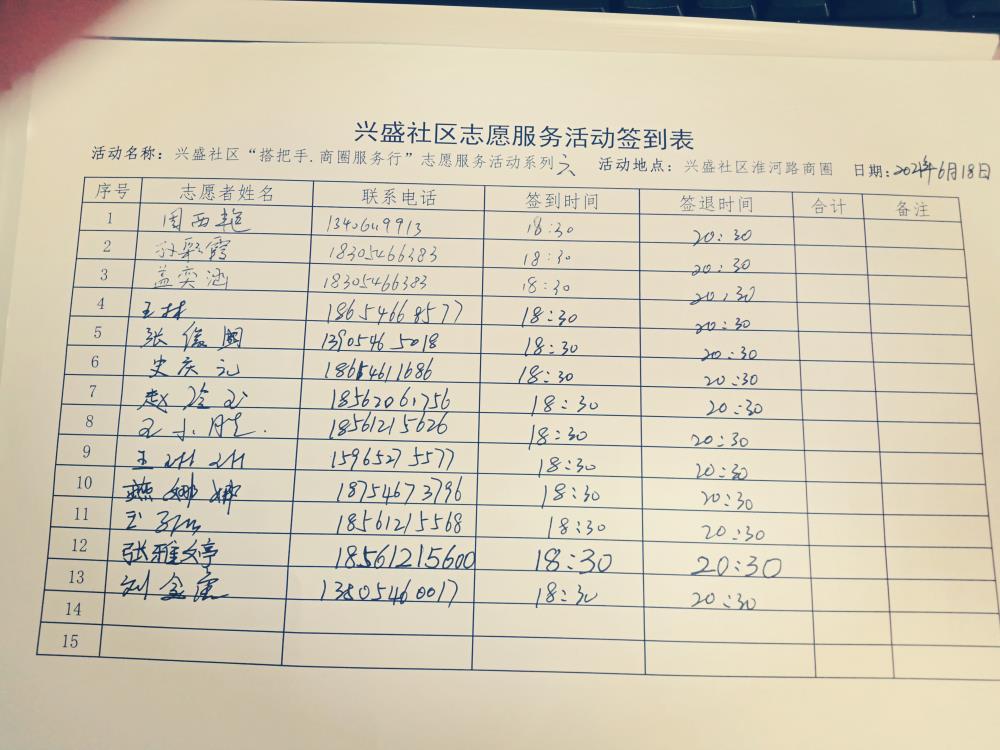 兴盛社区志愿服务活动签到表
活动名称：兴盛社区“搭把手.商圈服务行”志愿服务活动系列六 活动地点：兴盛社区淮河路商圈 日期：2021年6月18日
序号 志愿者姓名 联系电话 签到时间 签退时间 合计 备注
1 周西艳 18:30 20:30
2 孙彩霞 18305466383 18:30 20:30
3 盖奕涵 18305466383 18:30 20:30
4 王林 18654668577 18:30 20:30
5 张俊国 13905465018 18:30 20:30
6 史庆元 18654611686 18:30 20:30
7 赵玲玉 18562061756 18:30 20:30
8 王小 18561215626 18:30 20:30
9 王 15965275577 18:30 20:30
10 燕娜娜 18754673796 18:30 20:30
11 王 18561215568 18:30 20:30
12 张雅婷 18561215600 18:30 20:30
13 刘金 13805460017 18:30 20:30
14
15